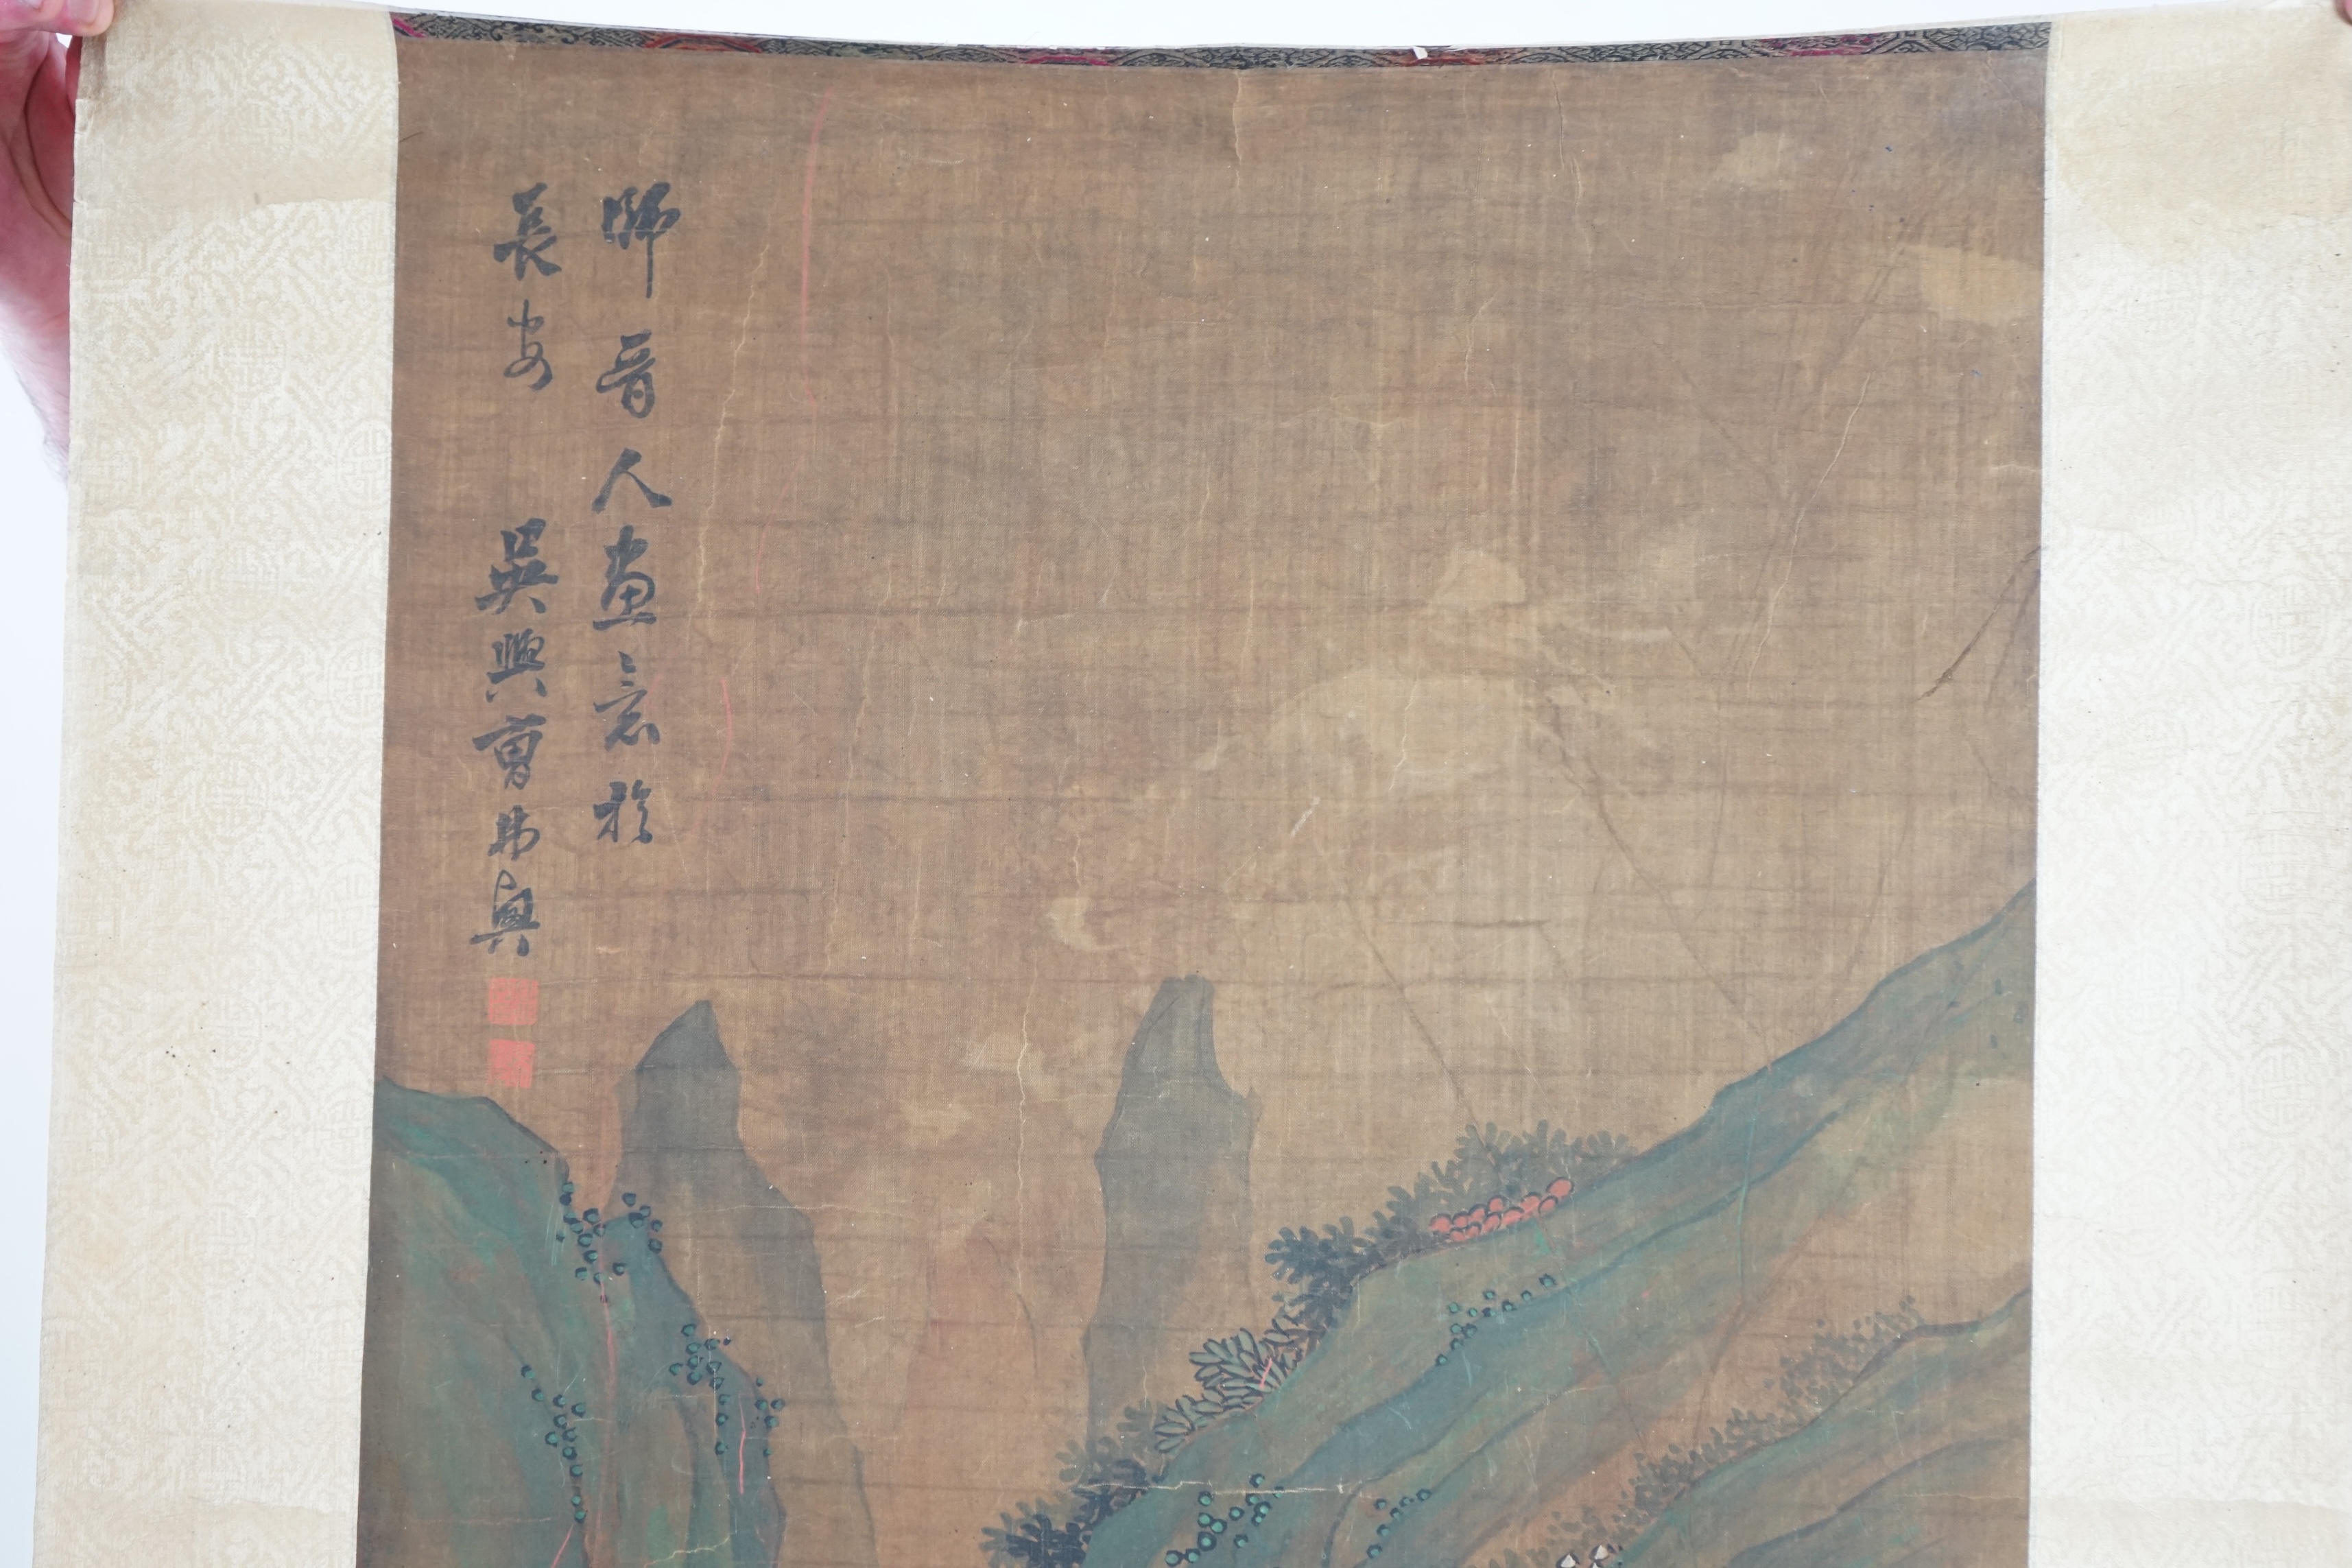 師晉人畫意於
長安 吳興曹